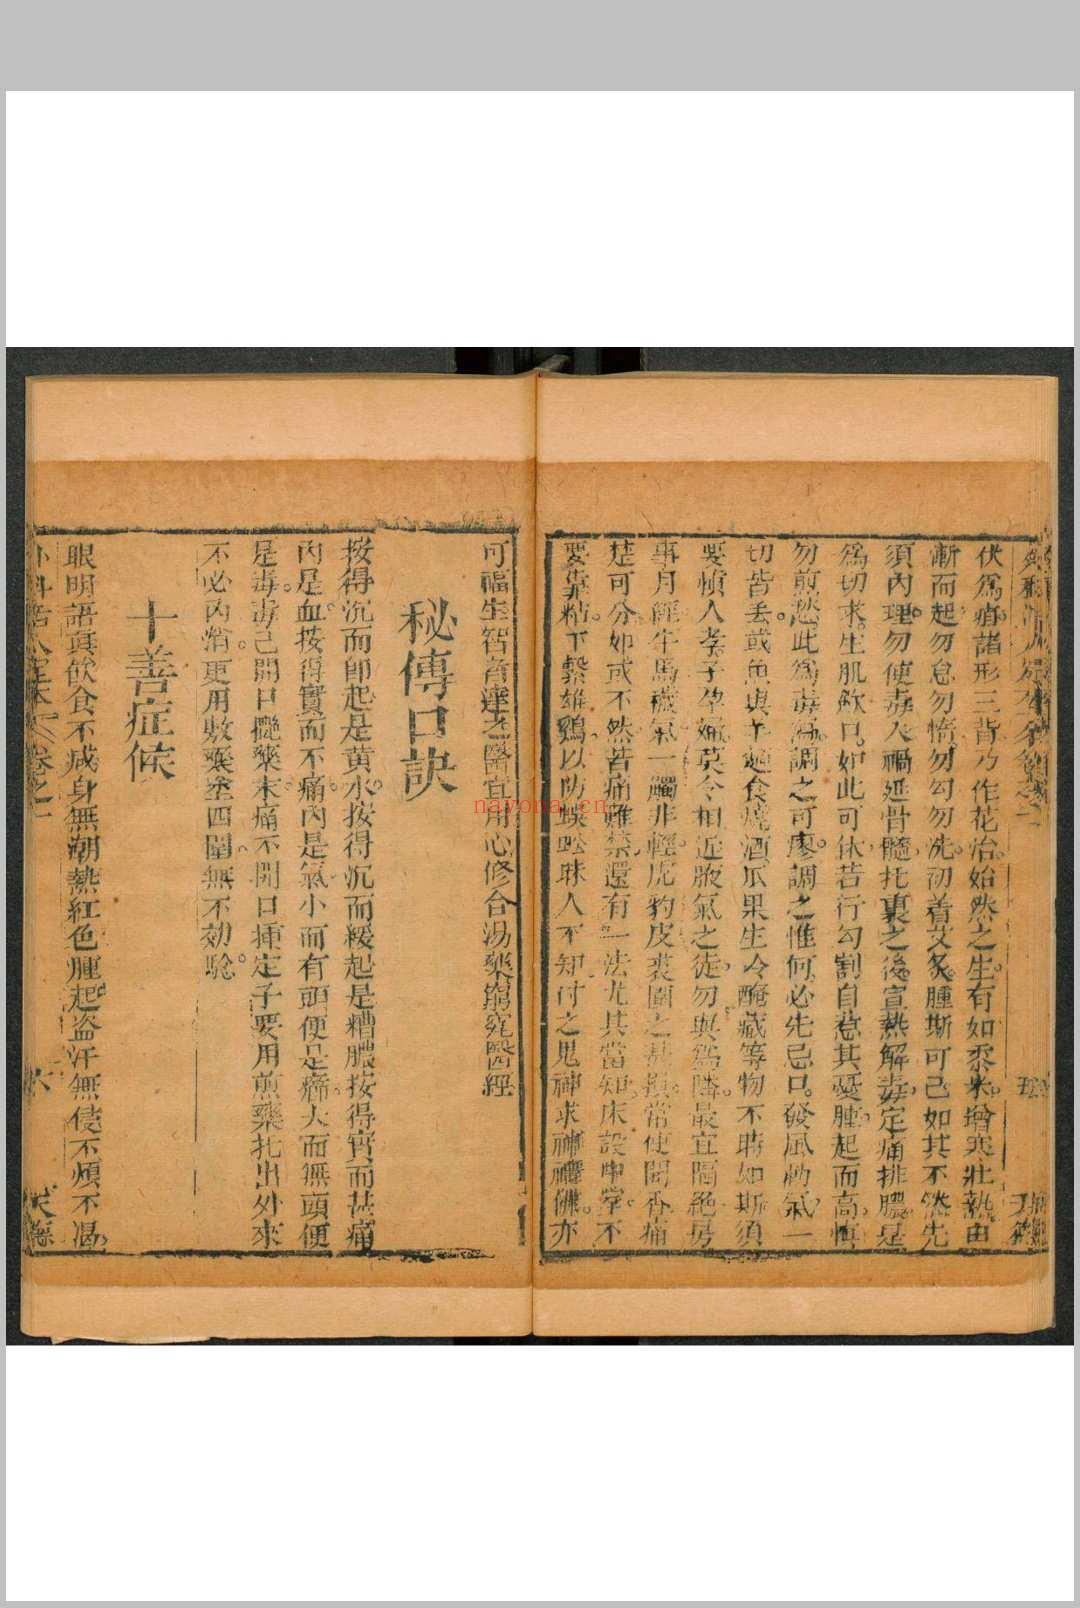 伏爲瘠諸形三背乃作花治始然之生有如黍米增寒壯熱由
漸而起勿怠勿惰勿勾勿洗初着艾炙腫斯可已如其不然先
須內理勿使毒入禍延骨髓托裏之後宣熱解毒定痛排膿是
爲切求生肌斂口如此可休若行勾割自惹其憂腫起而高慎
勿煎愁此爲毒調之可廖調之惟何必先忌口發風動氣一
切皆丢或魚與羊麪食燒酒瓜果生冷醃藏等物不時如斯須
要慎人孝子孕婦莫令相近腋氣之徒勿與爲隣最宜隔絕房
事月經牛馬穢氣一觸非輕虎豹皮裘圍之甚顯常使聞香痛
楚可分如或不然苦痛難禁還有一法尤其當知床設申掌不
要靠粘下繫雄鷄以防蜈蚣昧人不知付之鬼神求神禳佛亦
可福生智者達之醫宜用心修合湯藥窮究醫經
秘傳口訣
按得沉而即起是黄水按得沉而緩起是糟膿按得實而甚痛
內是血按得實而不痛內是氣小而有頭便是癤大而無頭便
是毒毒已開口攙藥末痛不開口揷定子要用煎藥托出外來
不必內消更用敷藥塗四圍無不効驗
十善症候
眼明語真飲食不减身無潮熱紅色腫起盗汗無侵不煩不渴
卷之一
六
nayona.cn